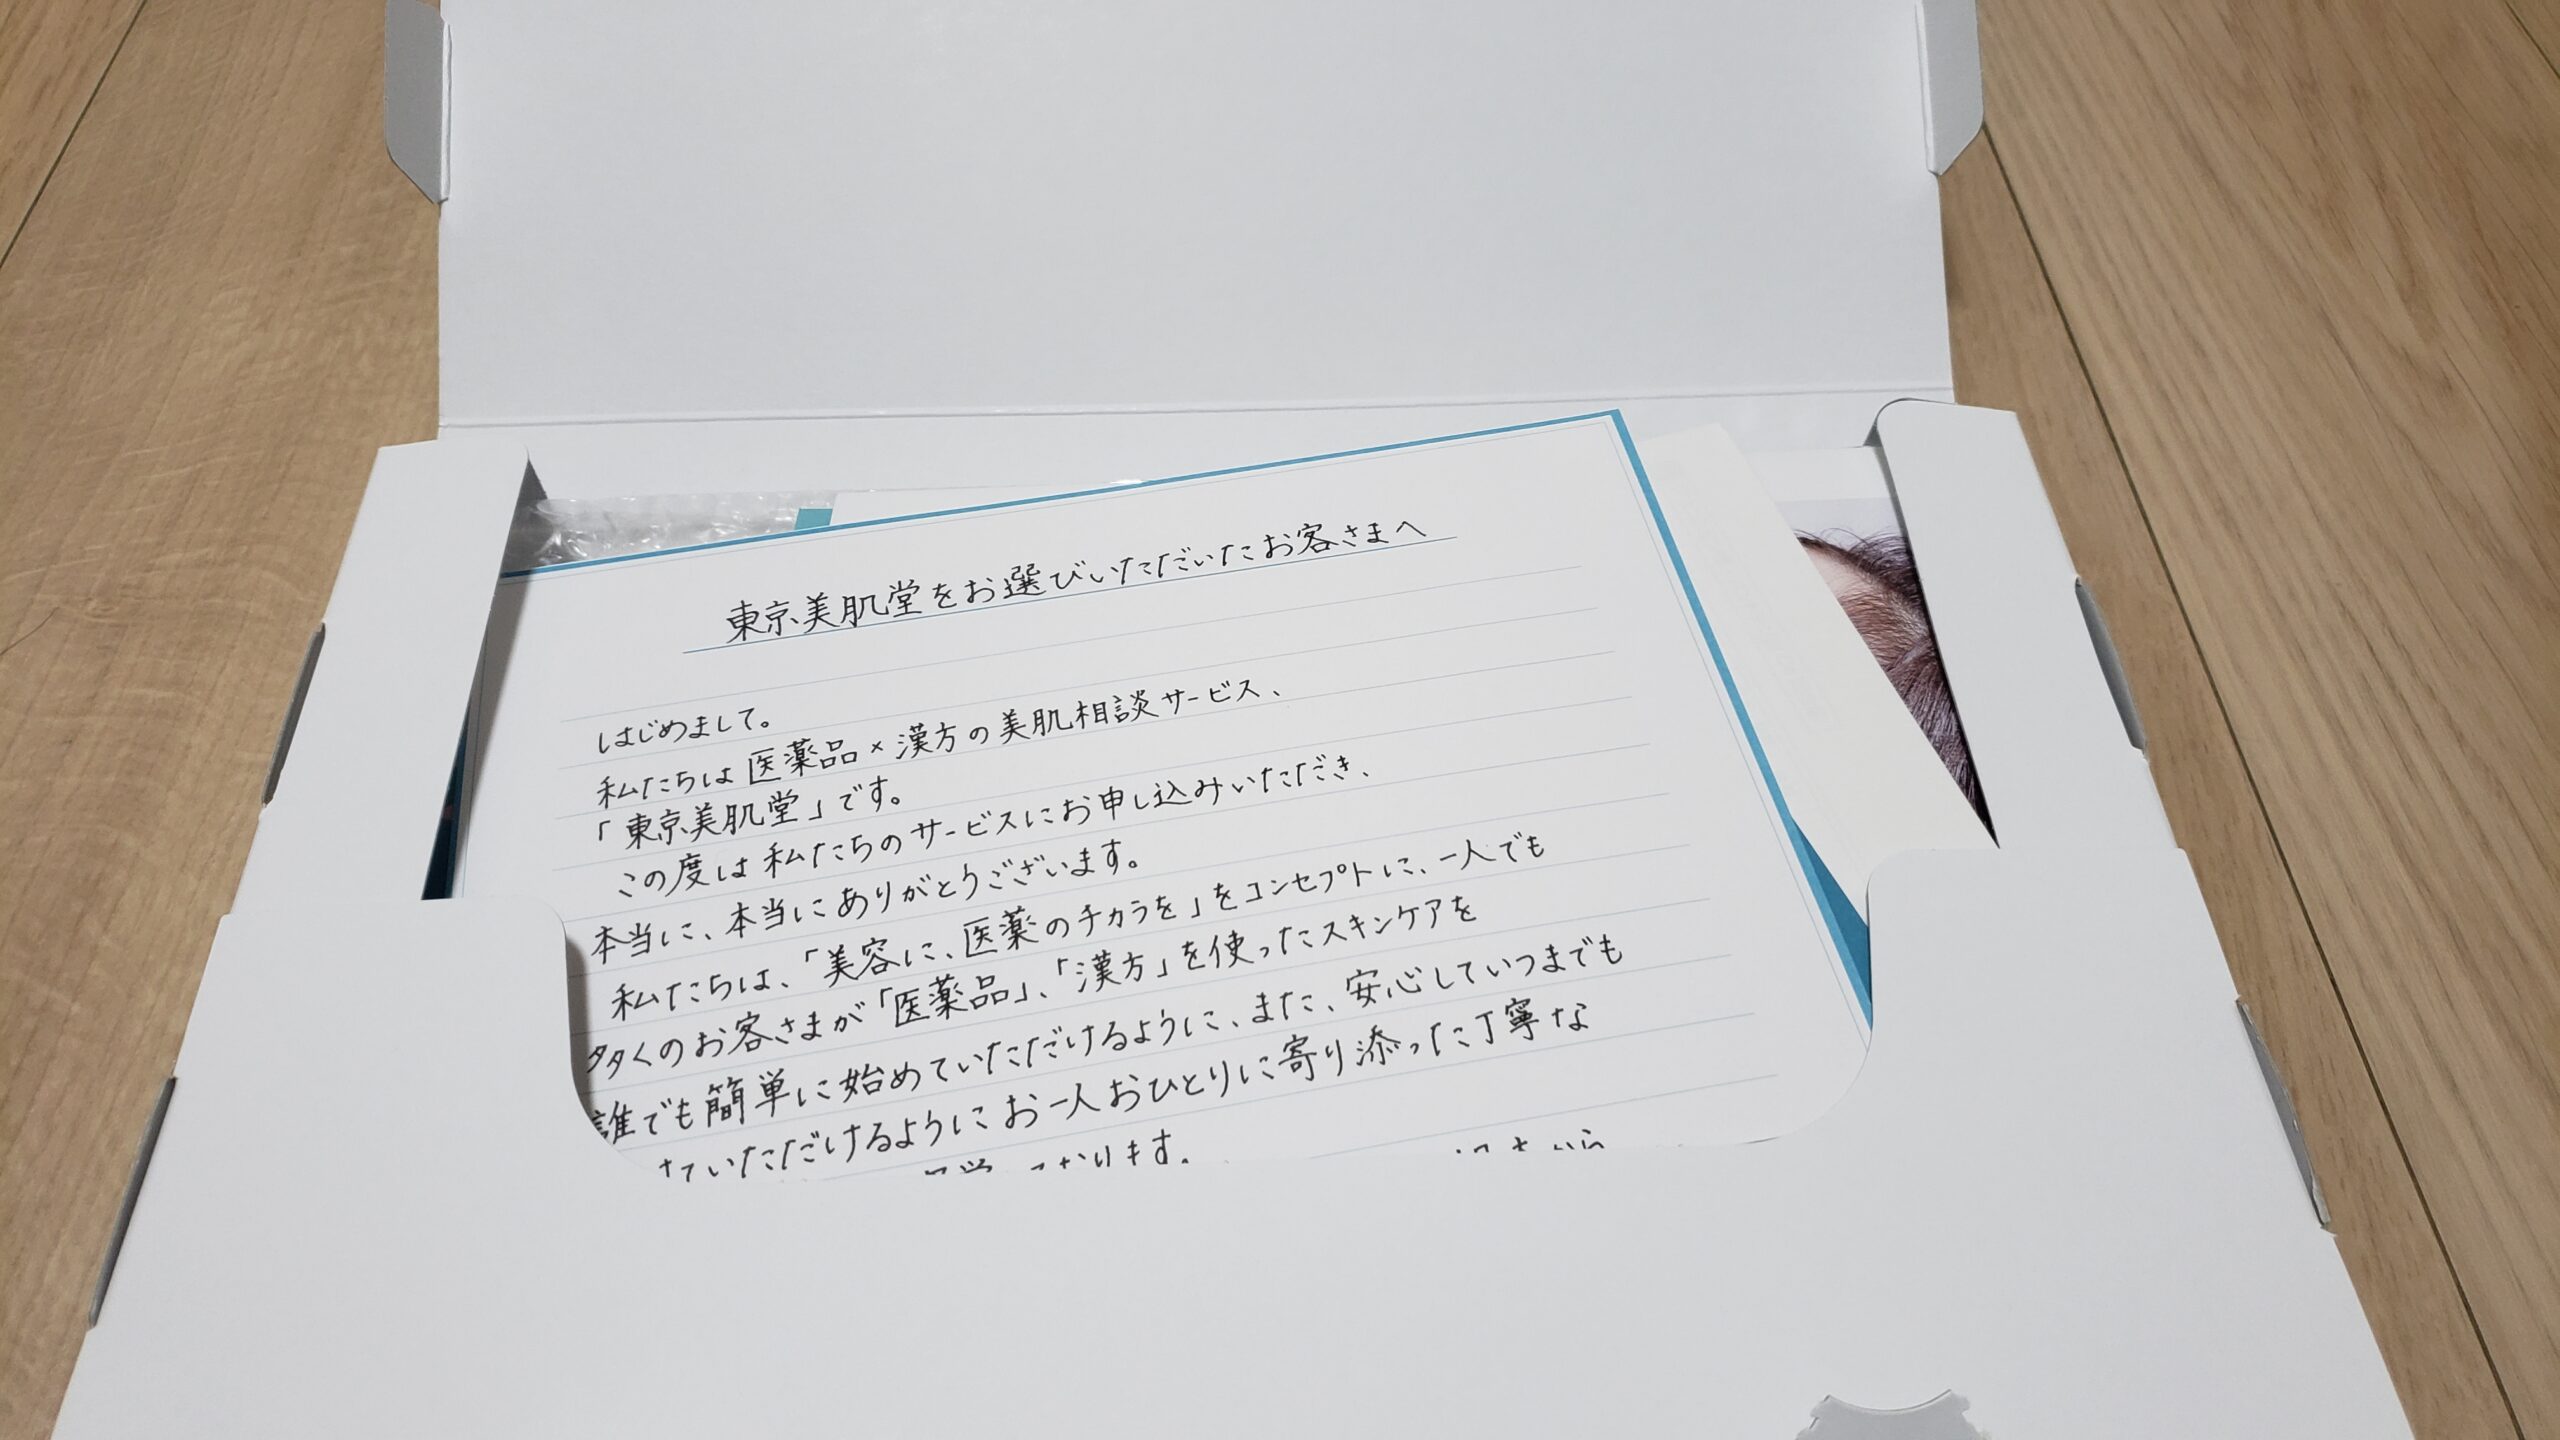 東京美肌堂をお選びいただいたお客さまへ
はじめまして。
私たちは医薬品×漢方の美肌相談サービス、
「東京美肌堂」です。
この度は私たちのサービスにお申し込みいただき、
本当に、本当にありがとうございます。
私たちは、「美容に、医薬のチカラを」をコンセプトに、一人でも
多くのお客さまが「医薬品」、「漢方」を使ったスキンケアを
誰でも簡単に始めていただけるように、また、安心していつまでも
ていただけるようにお一人おひとりに寄り添った丁寧な
おります。